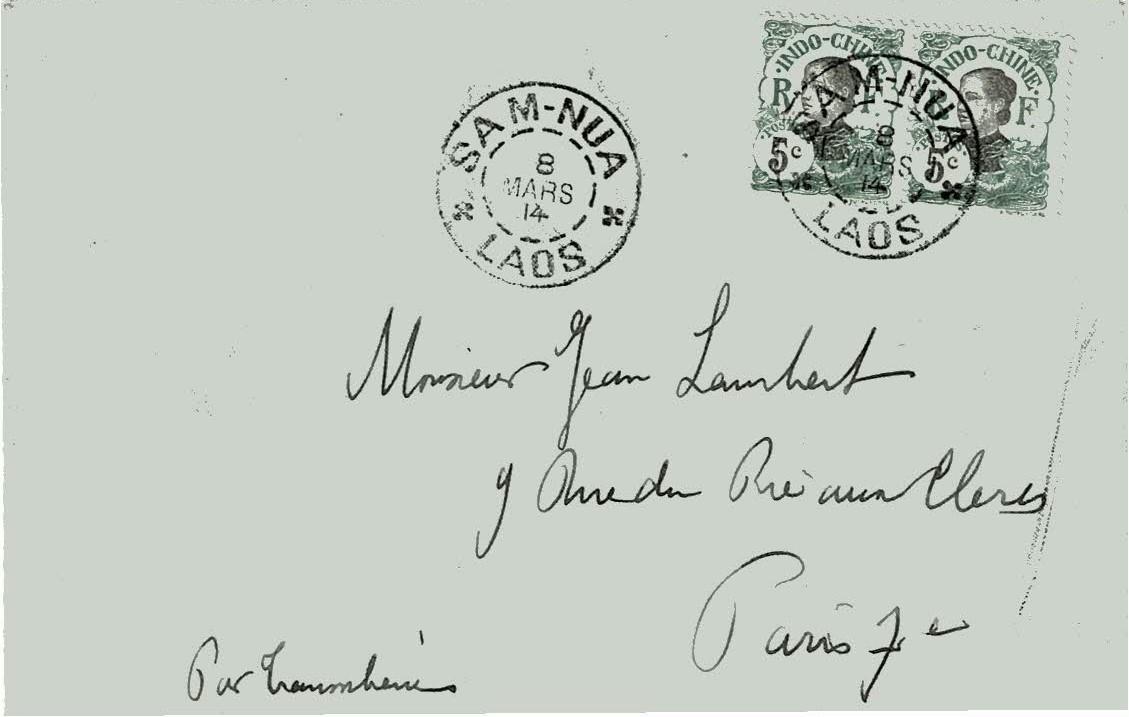 INDO-CHINE
RF
5c
INDO-CHINE
F
5c
SAM-NUA
8
MARS
14
LAOS
SAM-NUA
8
MARS
14
LAOS
Monsieur Jean Lambert
9 Rue du Pré aux Clercs
Paris 7e
Par